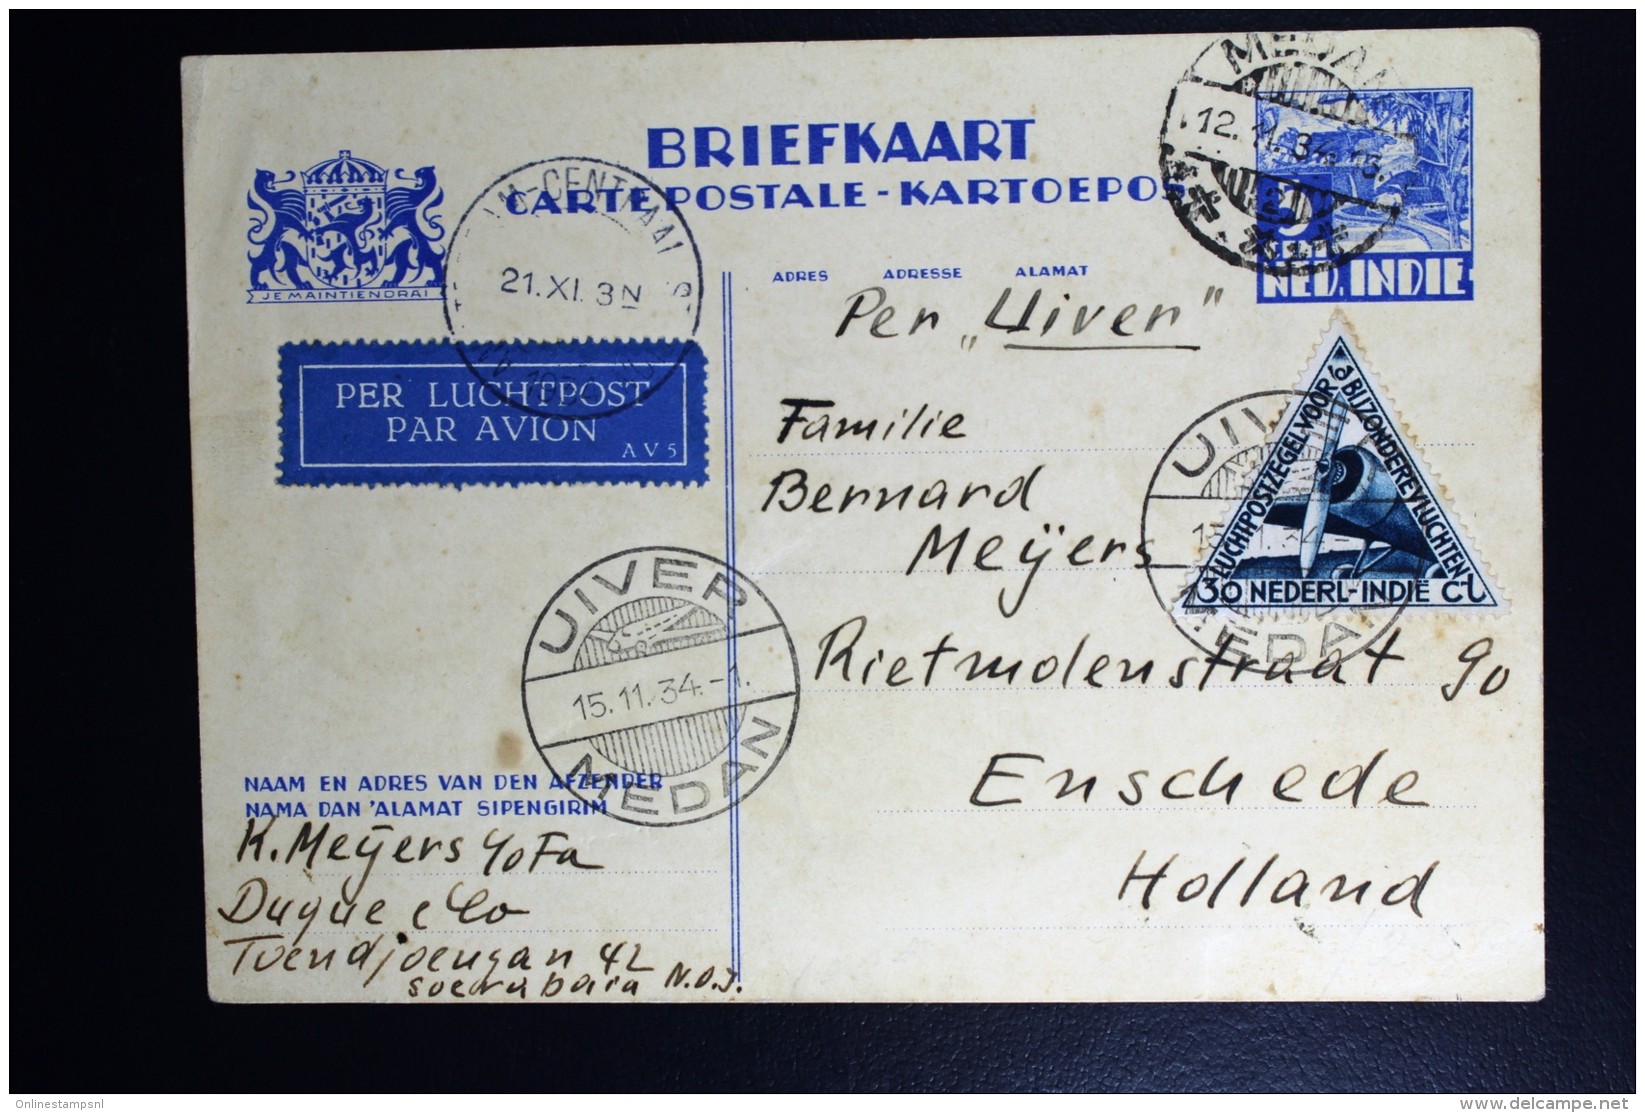 BRIEFKAART
CARTE POSTALE - KARTOEPOS
JE MAINTIENDRAI
M-CENTRAAL
21.XI. 3 N
1934
MEDAN
12.11.34
5
CENT
NED. INDIE
ADRES ADRESSE ALAMAT
Per „Uiver"
PER LUCHTPOST
PAR AVION
AV5
Familie
Bernard
Meÿers
Rietmolenstraat 90
Enschede
Holland
LUCHTPOSTZEGEL VOOR BIJZONDERE VLUCHTEN
30 NEDERL-INDIË Ct
UIVER
15.11.34.-1.
MEDAN
UIVER
15.11.34.-
MEDAN
NAAM EN ADRES VAN DEN AFZENDER
NAMA DAN 'ALAMAT SIPENGIRIM
K. Meÿers Fa
Duque & Co
Toendjoengan 42
Soerabaia N.O.I.
Onlinestampsnl
www.delcampe.net